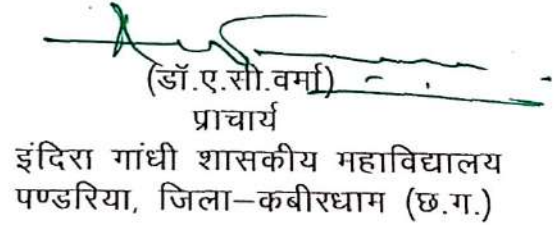 (डॉ.ए.सी.वर्मा)
प्राचार्य
इंदिरा गांधी शासकीय महाविद्यालय
पण्डरिया, जिला–कबीरधाम (छ.ग.)